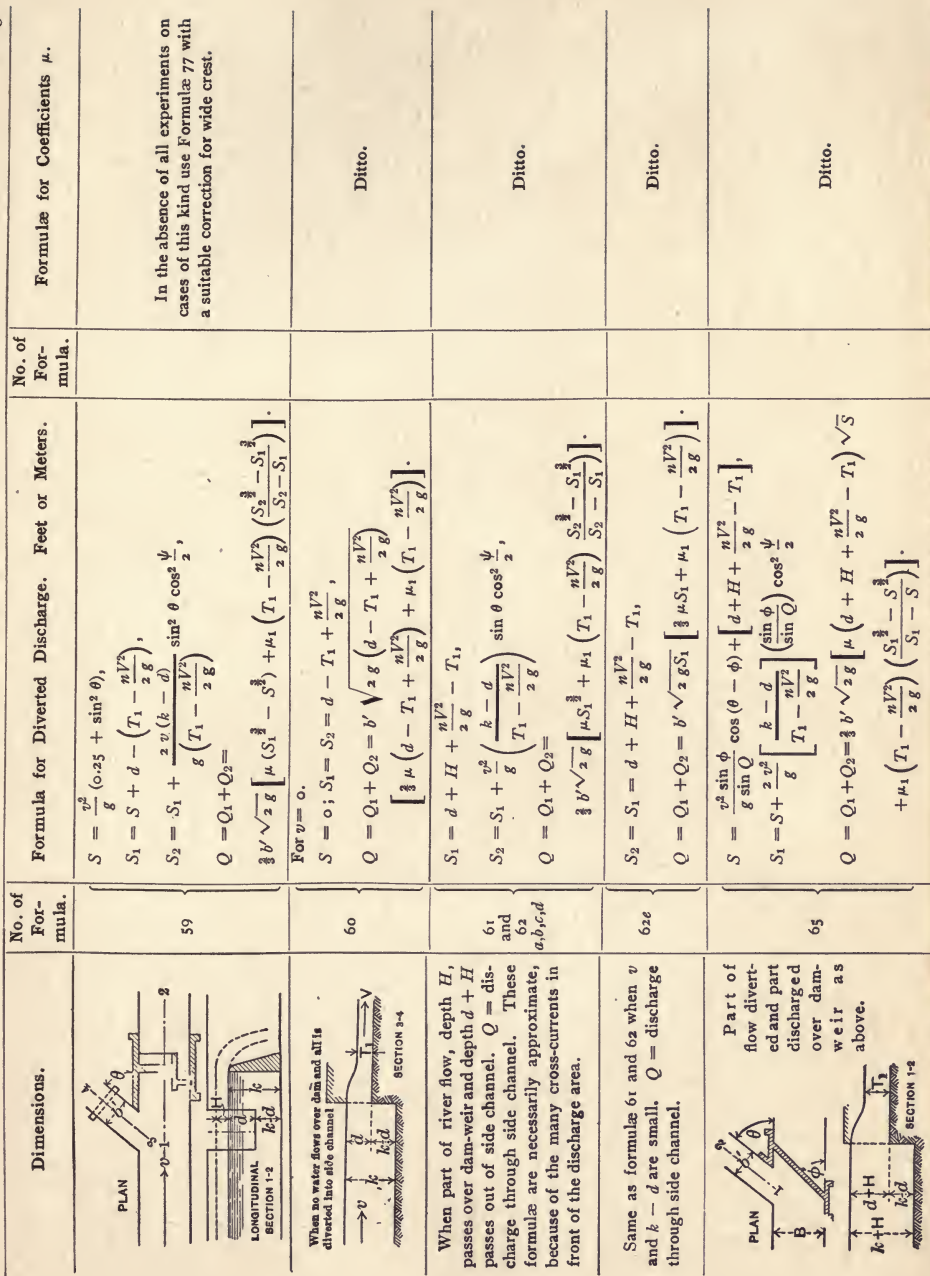 Dimensions.
No. of
For-
mula.
Formula for Diverted Discharge. Feet or Meters.
No. of
For-
mula.
Formulæ for Coefficients μ.
PLAN
b'
θ
v-1
2
H
d
k
k-d
LONGITUDINAL
SECTION 1-2
59
S = v²/g (0.25 + sin² θ),
S₁ = S + d − (T₁ − nV²/2g),
S₂ = S₁ + 2v(k − d)/g(T₁ − nV²/2g) sin² θ cos² ψ/2,
Q = Q₁ + Q₂ =
⅔ b′√2g [μ (S₁^{3/2} − S^{3/2}) + μ₁ (T₁ − nV²/2g) (S₂^{3/2} − S₁^{3/2}/S₂ − S₁)].
In the absence of all experiments on
cases of this kind use Formulæ 77 with
a suitable correction for wide crest.
When no water flows over dam and all is
diverted into side channel
v
d
k
k-d
T₁
V
SECTION 3-4
60
For v = 0.
S = 0; S₁ = S₂ = d − T₁ + nV²/2g,
Q = Q₁ + Q₂ = b′ √2g (d − T₁ + nV²/2g)
[⅔ μ (d − T₁ + nV²/2g) + μ₁ (T₁ − nV²/2g)].
Ditto.
When part of river flow, depth H,
passes over dam-weir and depth d + H
passes out of side channel. Q = dis-
charge through side channel. These
formulæ are necessarily approximate,
because of the many cross-currents in
front of the discharge area.
61
and
62
a,b,c,d
S₁ = d + H + nV²/2g − T₁,
S₂ = S₁ + v²/g (k − d/T₁ − nV²/2g) sin θ cos² ψ/2,
Q = Q₁ + Q₂ =
⅔ b′√2g [μS₁^{3/2} + μ₁ (T₁ − nV²/2g) S₂^{3/2} − S₁^{3/2}/S₂ − S₁)].
Ditto.
Same as formulæ 61 and 62 when v
and k − d are small. Q = discharge
through side channel.
62e
S₂ = S₁ = d + H + nV²/2g − T₁,
Q = Q₁ + Q₂ = b′ √2gS₁ [⅔ μS₁ + μ₁ (T₁ − nV²/2g)].
Ditto.
PLAN
B
θ
φ
Part of
flow divert-
ed and part
discharged
over dam-
weir as
above.
k+H
d+H
k-d
SECTION 1-2
65
S = v² sin φ/g sin Q cos (θ − φ) + [d + H + nV²/2g − T₁],
S₁ = S + 2v²/g [k − d/T₁ − nV²/2g] (sin φ/sin Q) cos² ψ/2
Q = Q₁ + Q₂ = ⅔ b′ √2g [μ (d + H + nV²/2g − T₁) √S
+ μ₁ (T₁ − nV²/2g) (S₁^{3/2} − S^{3/2}/S₁ − S)].
Ditto.